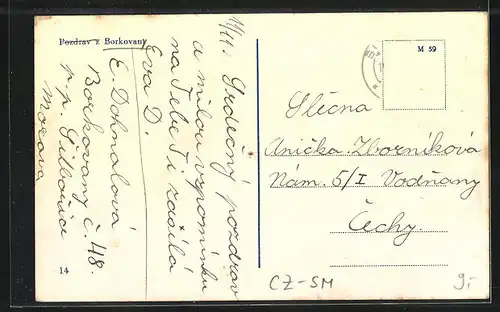 Pozdrav z Borkovany
14
M 59
11/11. Srdečný pozdrav
a milou vzpomínku
na Tebe Ti zasílá
Eva D.
E. Dohnalová
Borkovany č. 48.
p. p. Šitbořice
Morava
Slečna
Anička Zborníková
Nám. 5/I Vodňany
Čechy.
CZ-SM
9.-